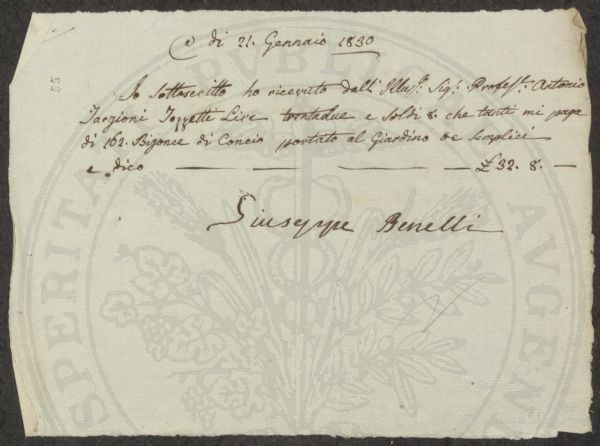 A di 21. Gennaio 1830
Io sottoscritto ho ricevuto dall' Illus. Sig. Profess. Antonio
Targioni Tozzetti Lire trentadue e soldi 8. che tanti mi paga
di 162. Bigonce di Concio portato al Giardino de Semplici
e dico £ 32. 8.
Giuseppe Benelli
55
SPERITA PUBLICA AUGEND